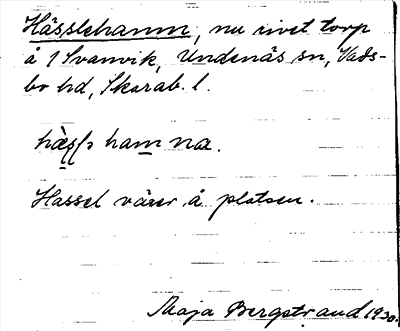 Hässlehamn, nu rivet torp
å 1 Svanvik, Undenäs sn, Vads-
bo hd, Skarab. l.
ham na.
Hassel växer å platsen.
Maja Bergstrand 1930.